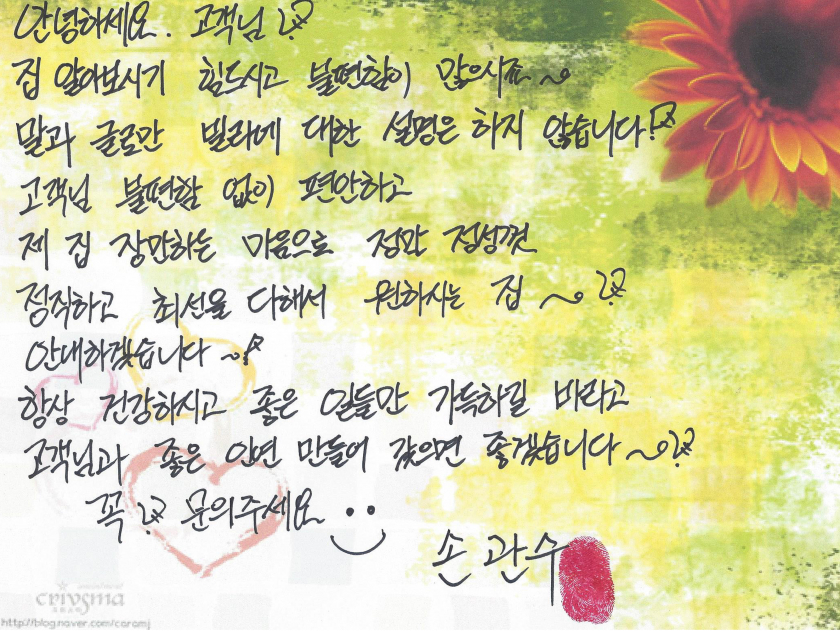 안녕하세요. 고객님
집 알아보시기 힘드시고 불편함이 많으시죠~
말과 글로만 빌라에 대한 설명은 하지 않습니다!
고객님 불편함 없이 편안하고
제 집 장만하는 마음으로 정말 정성껏
정직하고 최선을 다해서 원하시는 집~
안내하겠습니다~
항상 건강하시고 좋은 일들만 가득하길 바라고
고객님과 좋은 인연 만들어 갔으면 좋겠습니다~
꼭 문의주세요
손관수
crivsma
http://blog.naver.com/caramj